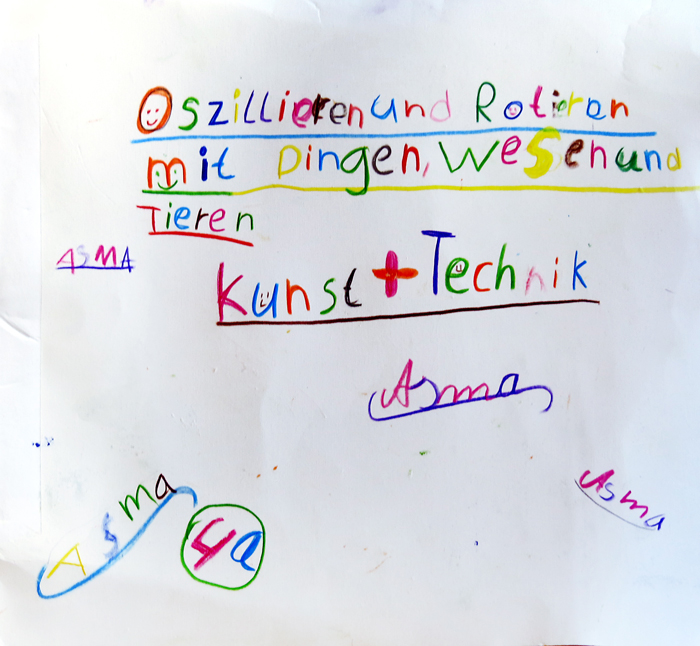 Oszillieren und Rotieren
mit Dingen, Wesen und
Tieren
ASMA
Kunst + Technik
Asma
Asma
Asma
4a